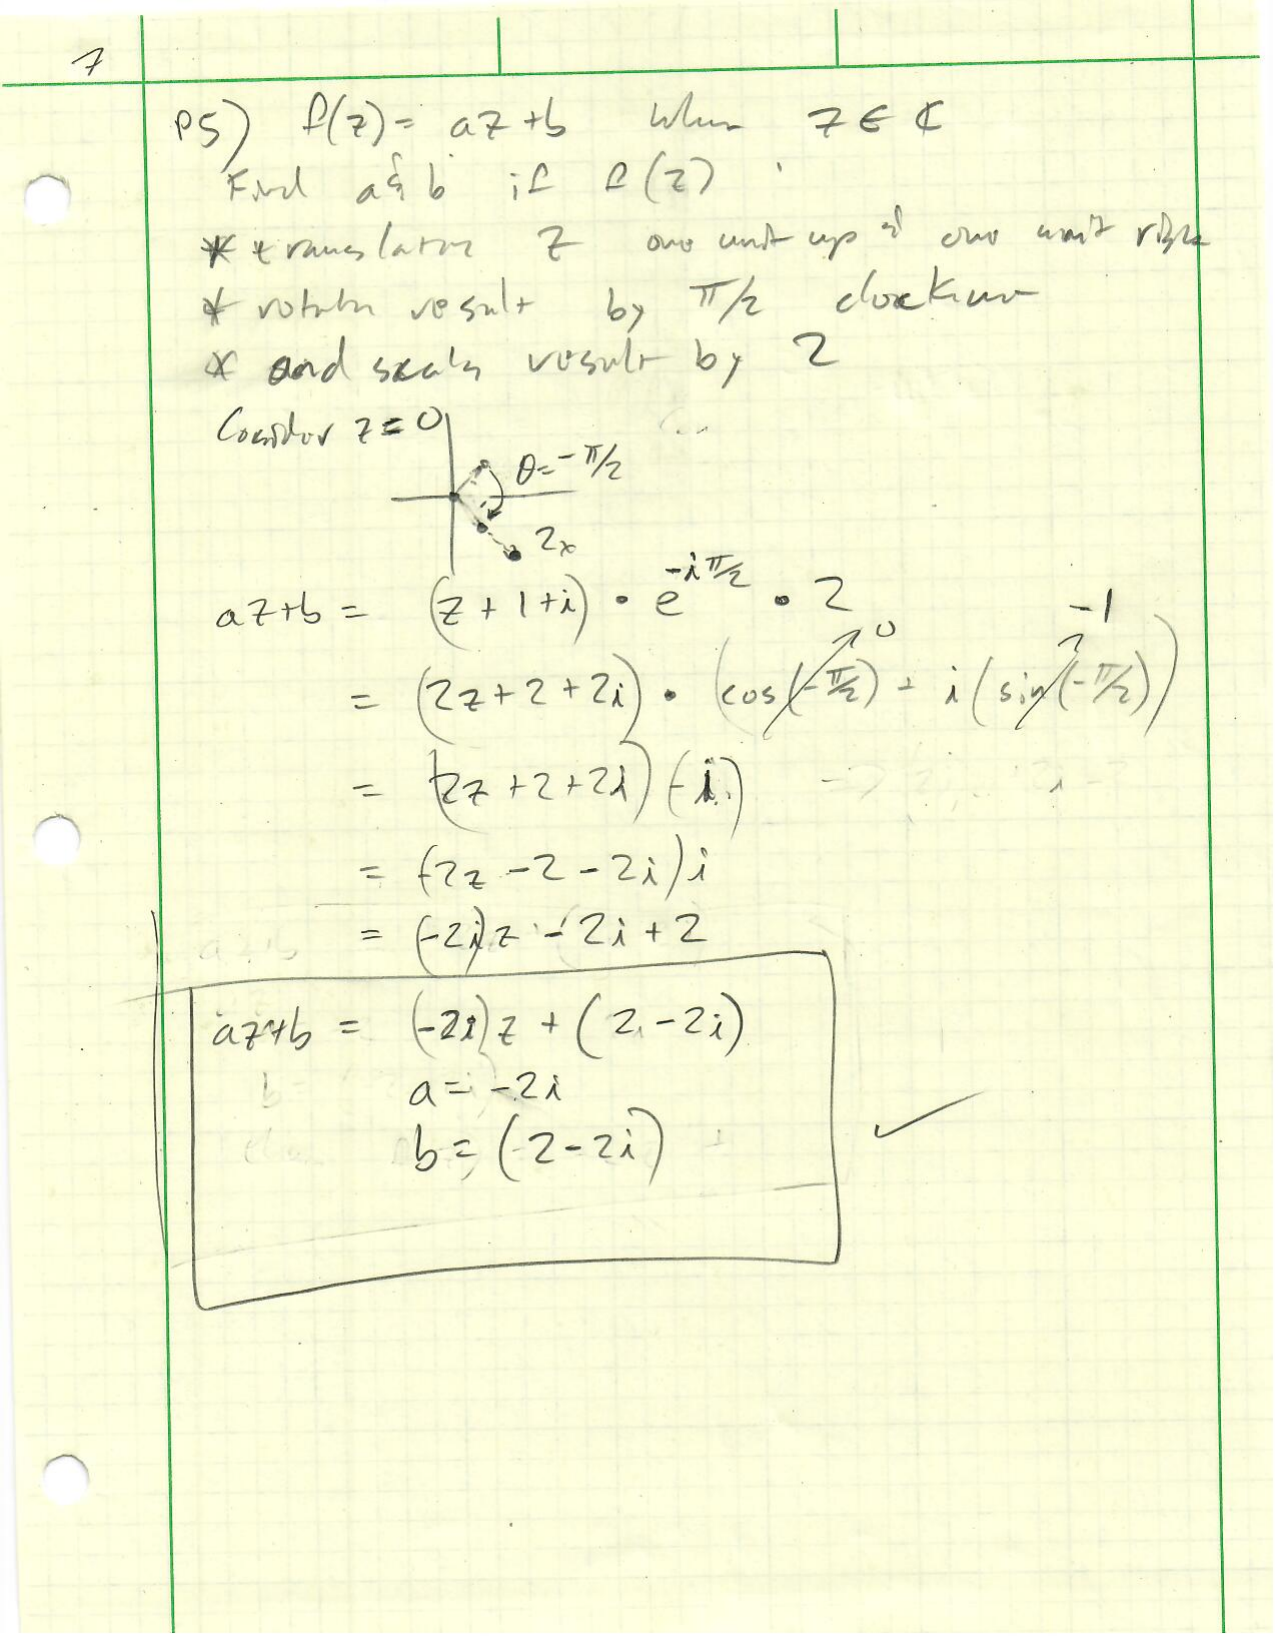 7
P5) f(z) = az+b when z ∈ ℂ
Find a & b if f(z) :
* translates z one unit up & one unit right
* rotates result by π/2 clockwise
* and scales result by 2
Consider z = 0
θ = -π/2
2x
az+b = (z + 1 + i) • e^{-iπ/2} • 2
0 -1
= (2z + 2 + 2i) • (cos(-π/2) + i(sin(-π/2))
= (2z + 2 + 2i)(-i)
= (-2z - 2 - 2i)i
= (-2i)z - 2i + 2
az+b = (-2i)z + (2 - 2i)
a = -2i
b = (2 - 2i) ✓